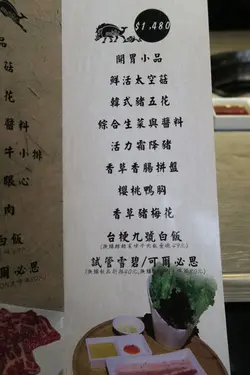 $1,480
開胃小品
鮮活太空菇
韓式豬五花
綜合生菜與醬料
活力霜降豬
香草香腸拼盤
櫻桃鴨胸
香草豬梅花
台梗九號白飯
試管雪碧/可爾必思
品
菇
花
醬料
牛小排
眼心
肉
白飯
爾必思